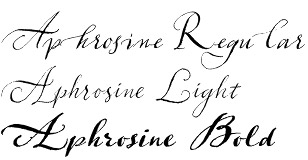 Aphrosine Regular
Aphrosine Light
Aphrosine Bold